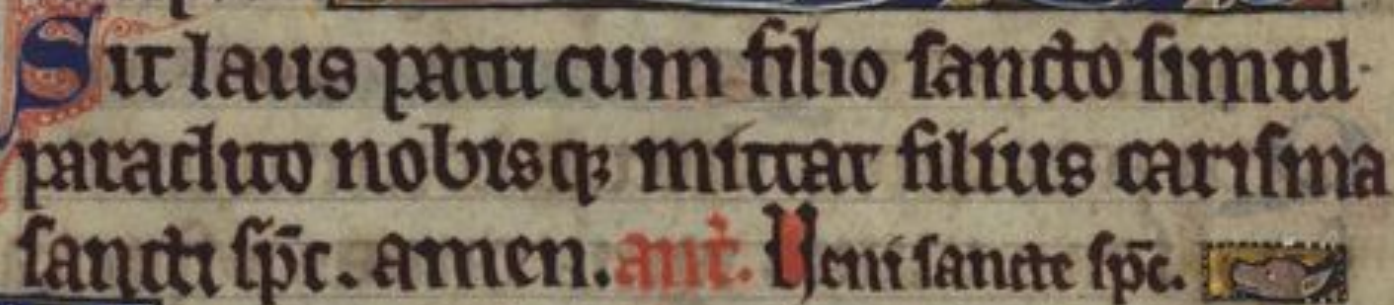 Sit laus patri cum filio sancto simul.
paraclito nobisqꝫ mittat filius carisma
sancti sp̄c. amen. ant̉. Veni sancte sp̄c.